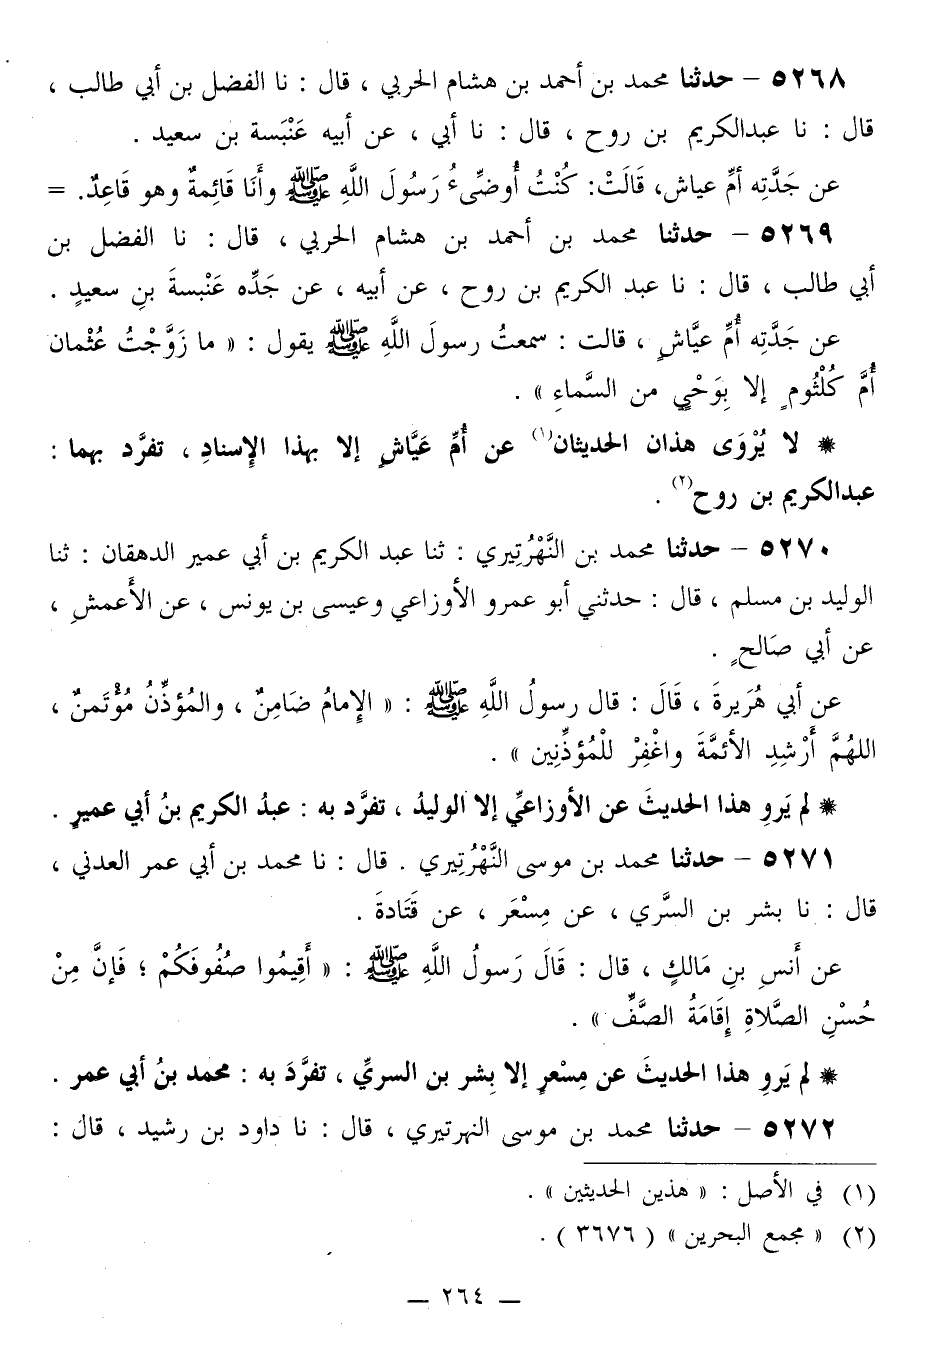 ٥٢٦٨ – حدثنا محمد بن أحمد بن هشام الحربي ، قال : نا الفضل بن أبي طالب ،
قال : نا عبدالكريم بن روح ، قال : نا أبي ، عن أبيه عَنْبَسة بن سعيد .
عن جَدَّتِه أمِّ عياش، قَالَتْ: كُنْتُ أُوضِّىءُ رَسُولَ اللَّهِ ﷺ وأَنَا قَائِمةٌ وهو قَاعِدٌ. =
٥٢٦٩ – حدثنا محمد بن أحمد بن هشام الحربي ، قال : نا الفضل بن
أبي طالب ، قال : نا عبد الكريم بن روح ، عن أبيه ، عن جَدِّه عَنْبسةَ بنِ سعيدٍ .
عن جَدَّتِه أُمِّ عيَّاشٍ ، قالت : سمعتُ رسولَ اللَّهِ ﷺ يقول : « ما زَوَّجْتُ عُثْمان
أُمَّ كُلْثُومٍ إلا بِوَحْيٍ من السَّماءِ » .
* لا يُرْوَى هذان الحديثان(١) عن أُمِّ عَيَّاشٍ إلا بهذا الإِسنادِ ، تفرَّد بهما :
عبدالكريم بن روح(٢) .
٥٢٧٠ – حدثنا محمد بن النَّهْرُتِيري : ثنا عبد الكريم بن أبي عمير الدهقان : ثنا
الوليد بن مسلم ، قال : حدثني أبو عمرو الأوزاعي وعيسى بن يونس ، عن الأَعمشِ ،
عن أبي صَالحٍ .
عن أبي هُرَيرةَ ، قَالَ : قال رسولُ اللَّهِ ﷺ : « الإِمامُ ضَامِنٌ ، والمُؤذِّنُ مُؤْتَمنٌ ،
اللهُمَّ أَرْشِدِ الأئمَّةَ واغْفِرْ للْمُؤذِّنِين » .
* لم يَروِ هذا الحديثَ عن الأوزاعيِّ إلا الوليدُ ، تفرَّد به : عبدُ الكريم بنُ أبي عميرٍ .
٥٢٧١ – حدثنا محمد بن موسى النَّهْرُتِيري . قال : نا محمد بن أبي عمر العدني ،
قال : نا بشر بن السَّري ، عن مِسْعَر ، عن قَتَادةَ .
عن أَنسِ بنِ مَالكٍ ، قال : قَالَ رَسولُ اللَّهِ ﷺ : « أَقِيمُوا صُفُوفَكُمْ ؛ فَإنَّ مِنْ
حُسْنِ الصَّلاةِ إِقَامَةُ الصَّفِّ » .
* لم يَروِ هذا الحديثَ عن مِسْعرٍ إلا بِشر بن السريِّ ، تفرَّدَ به : محمد بنُ أبي عمر .
٥٢٧٢ – حدثنا محمد بن موسى النهرتيري ، قال : نا داود بن رشيد ، قال :
(١) في الأصل : « هذين الحديثين » .
(٢) « مجمع البحرين » ( ٣٦٧٦ ) .
— ٢٦٤ —